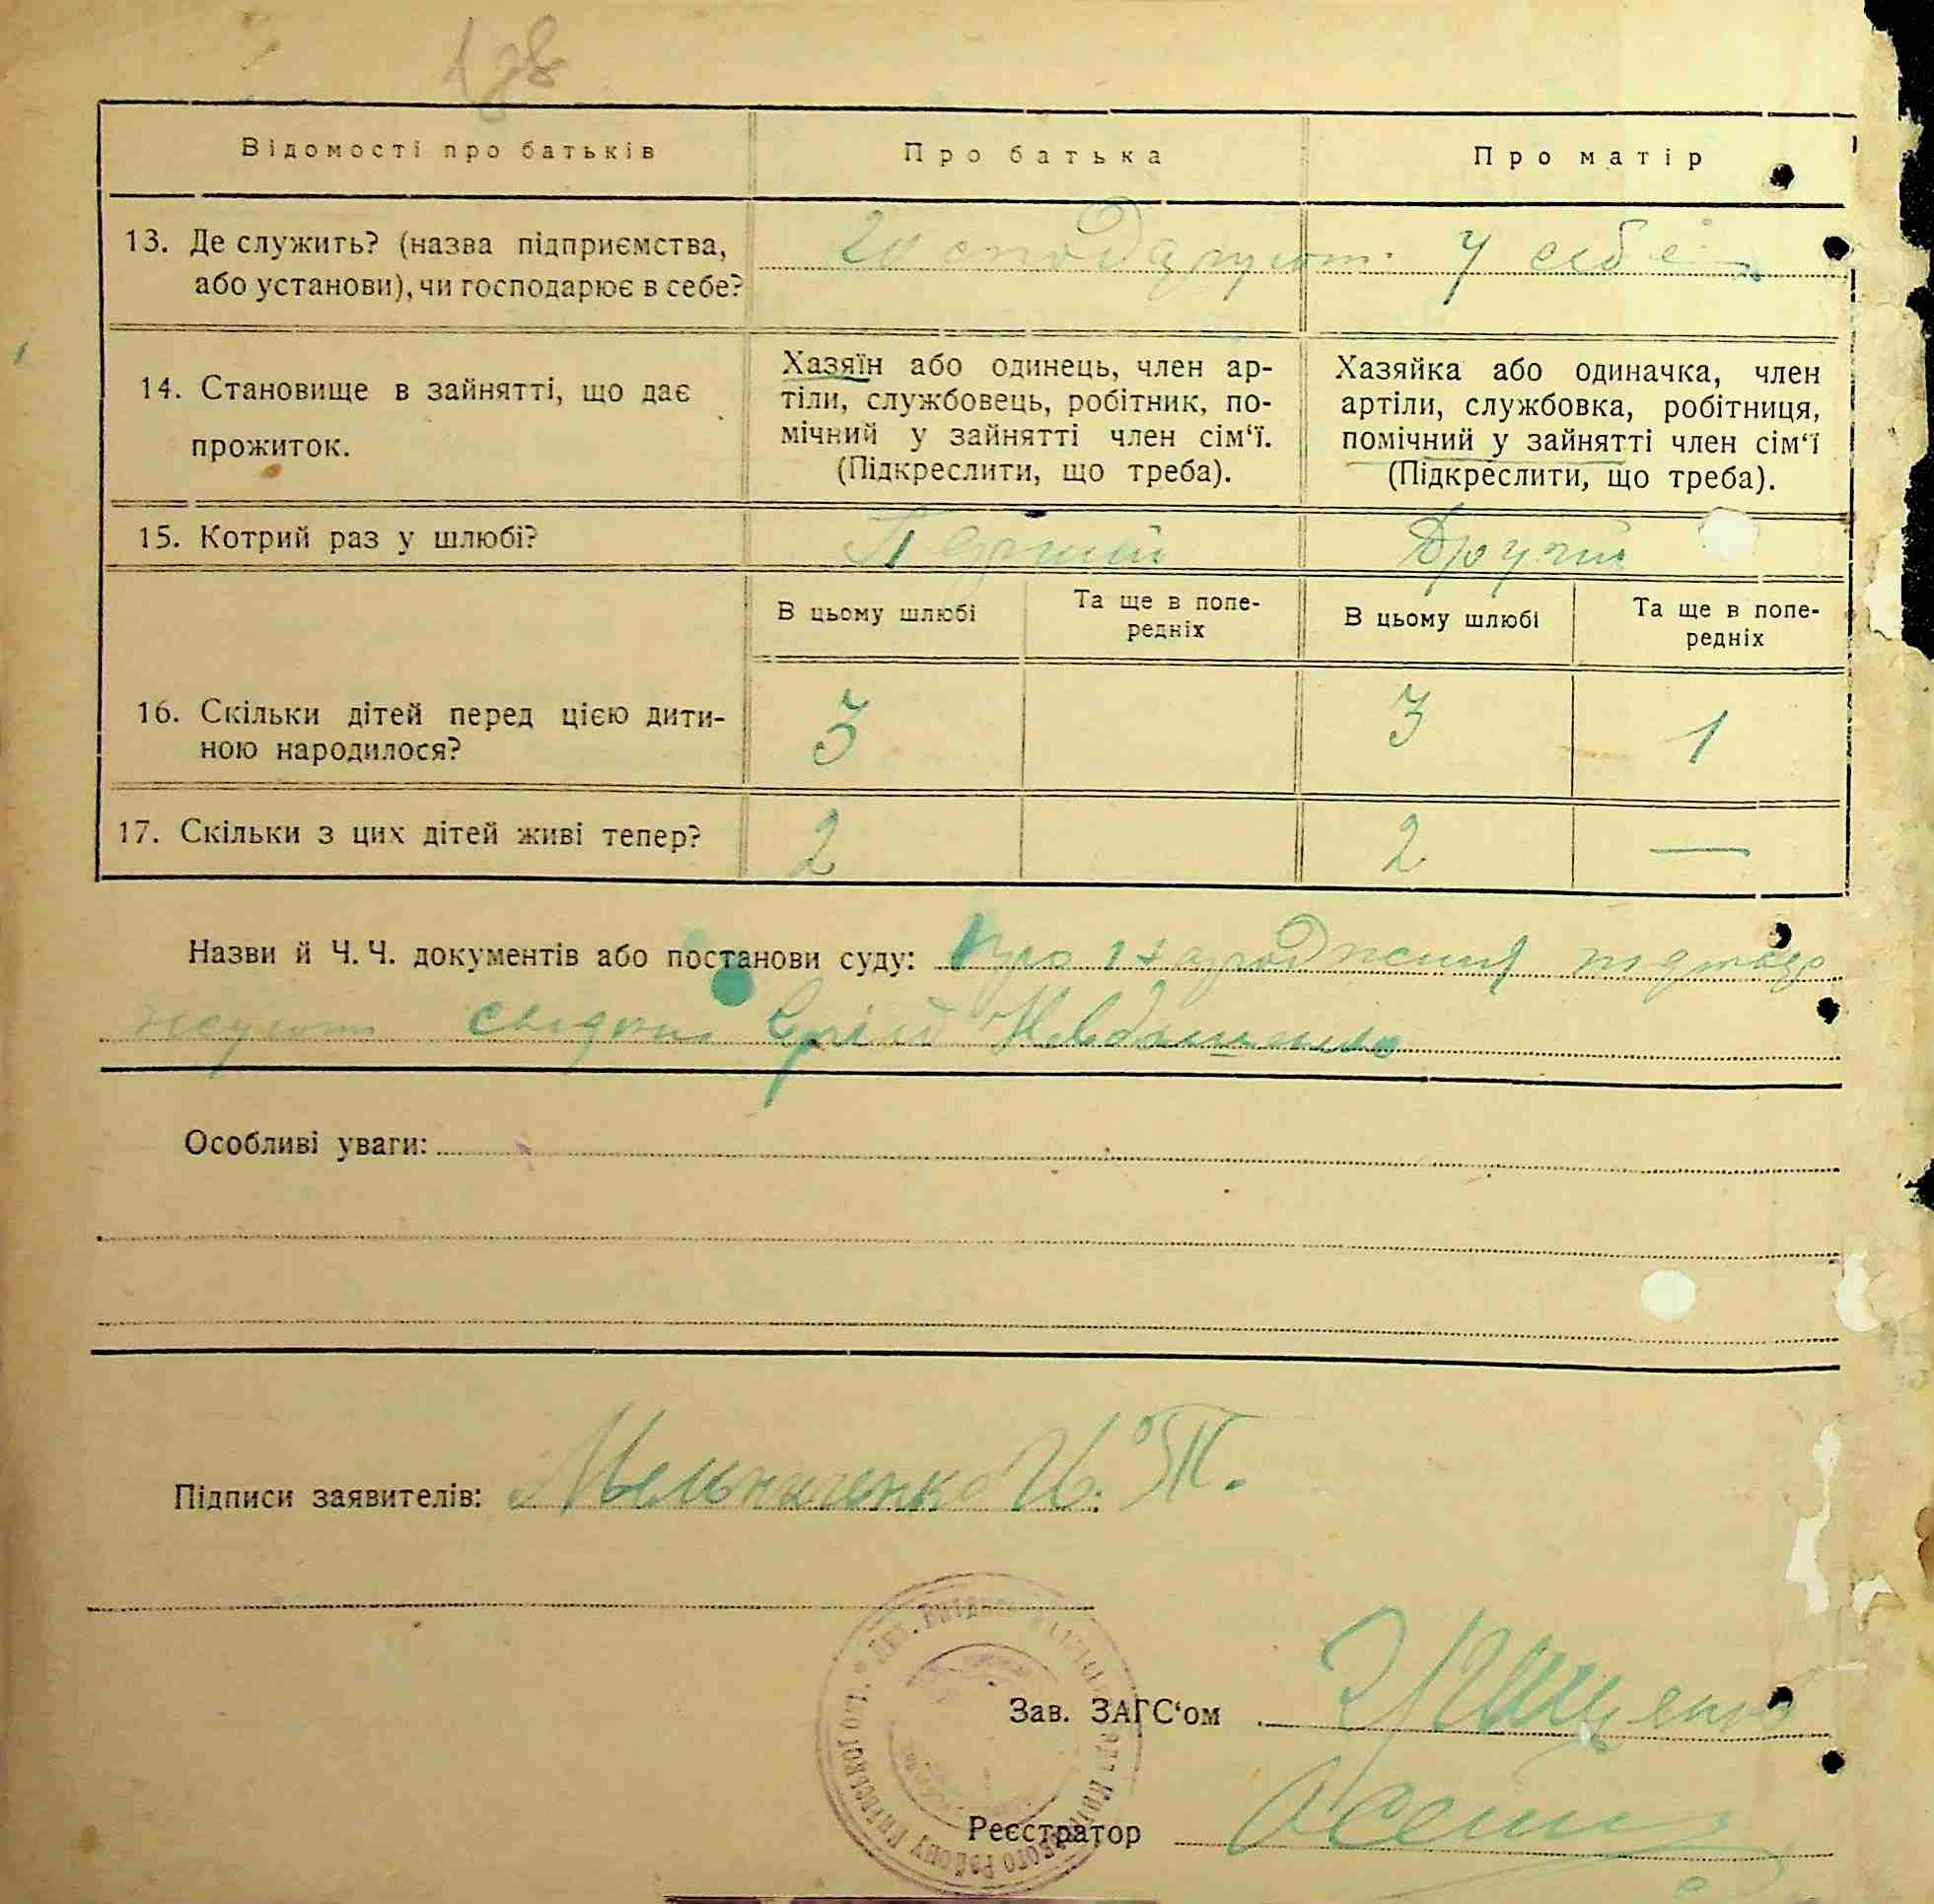 178
Відомості про батьків Про батька Про матір
13. Де служить? (назва підприємства, або установи), чи господарює в себе? Господарують у себе
14. Становище в зайнятті, що дає прожиток.
Хазяїн або одинець, член ар-
тіли, службовець, робітник, по-
мічний у зайнятті член сім‘ї.
(Підкреслити, що треба).
Хазяйка або одиначка, член
артіли, службовка, робітниця,
помічний у зайнятті член сім‘ї
(Підкреслити, що треба).
15. Котрий раз у шлюбі? Перший Другий
В цьому шлюбі Та ще в попе-редніх В цьому шлюбі Та ще в попе-редніх
16. Скільки дітей перед цією дити-
ною народилося? 3 3 1
17. Скільки з цих дітей живі тепер? 2 2 —
Назви й Ч. Ч. документів або постанови суду: Про народження
свідки
Особливі уваги:
Підписи заявителів: Мельниченко И. Т.
Зав. ЗАГС‘ом
Реєстратор